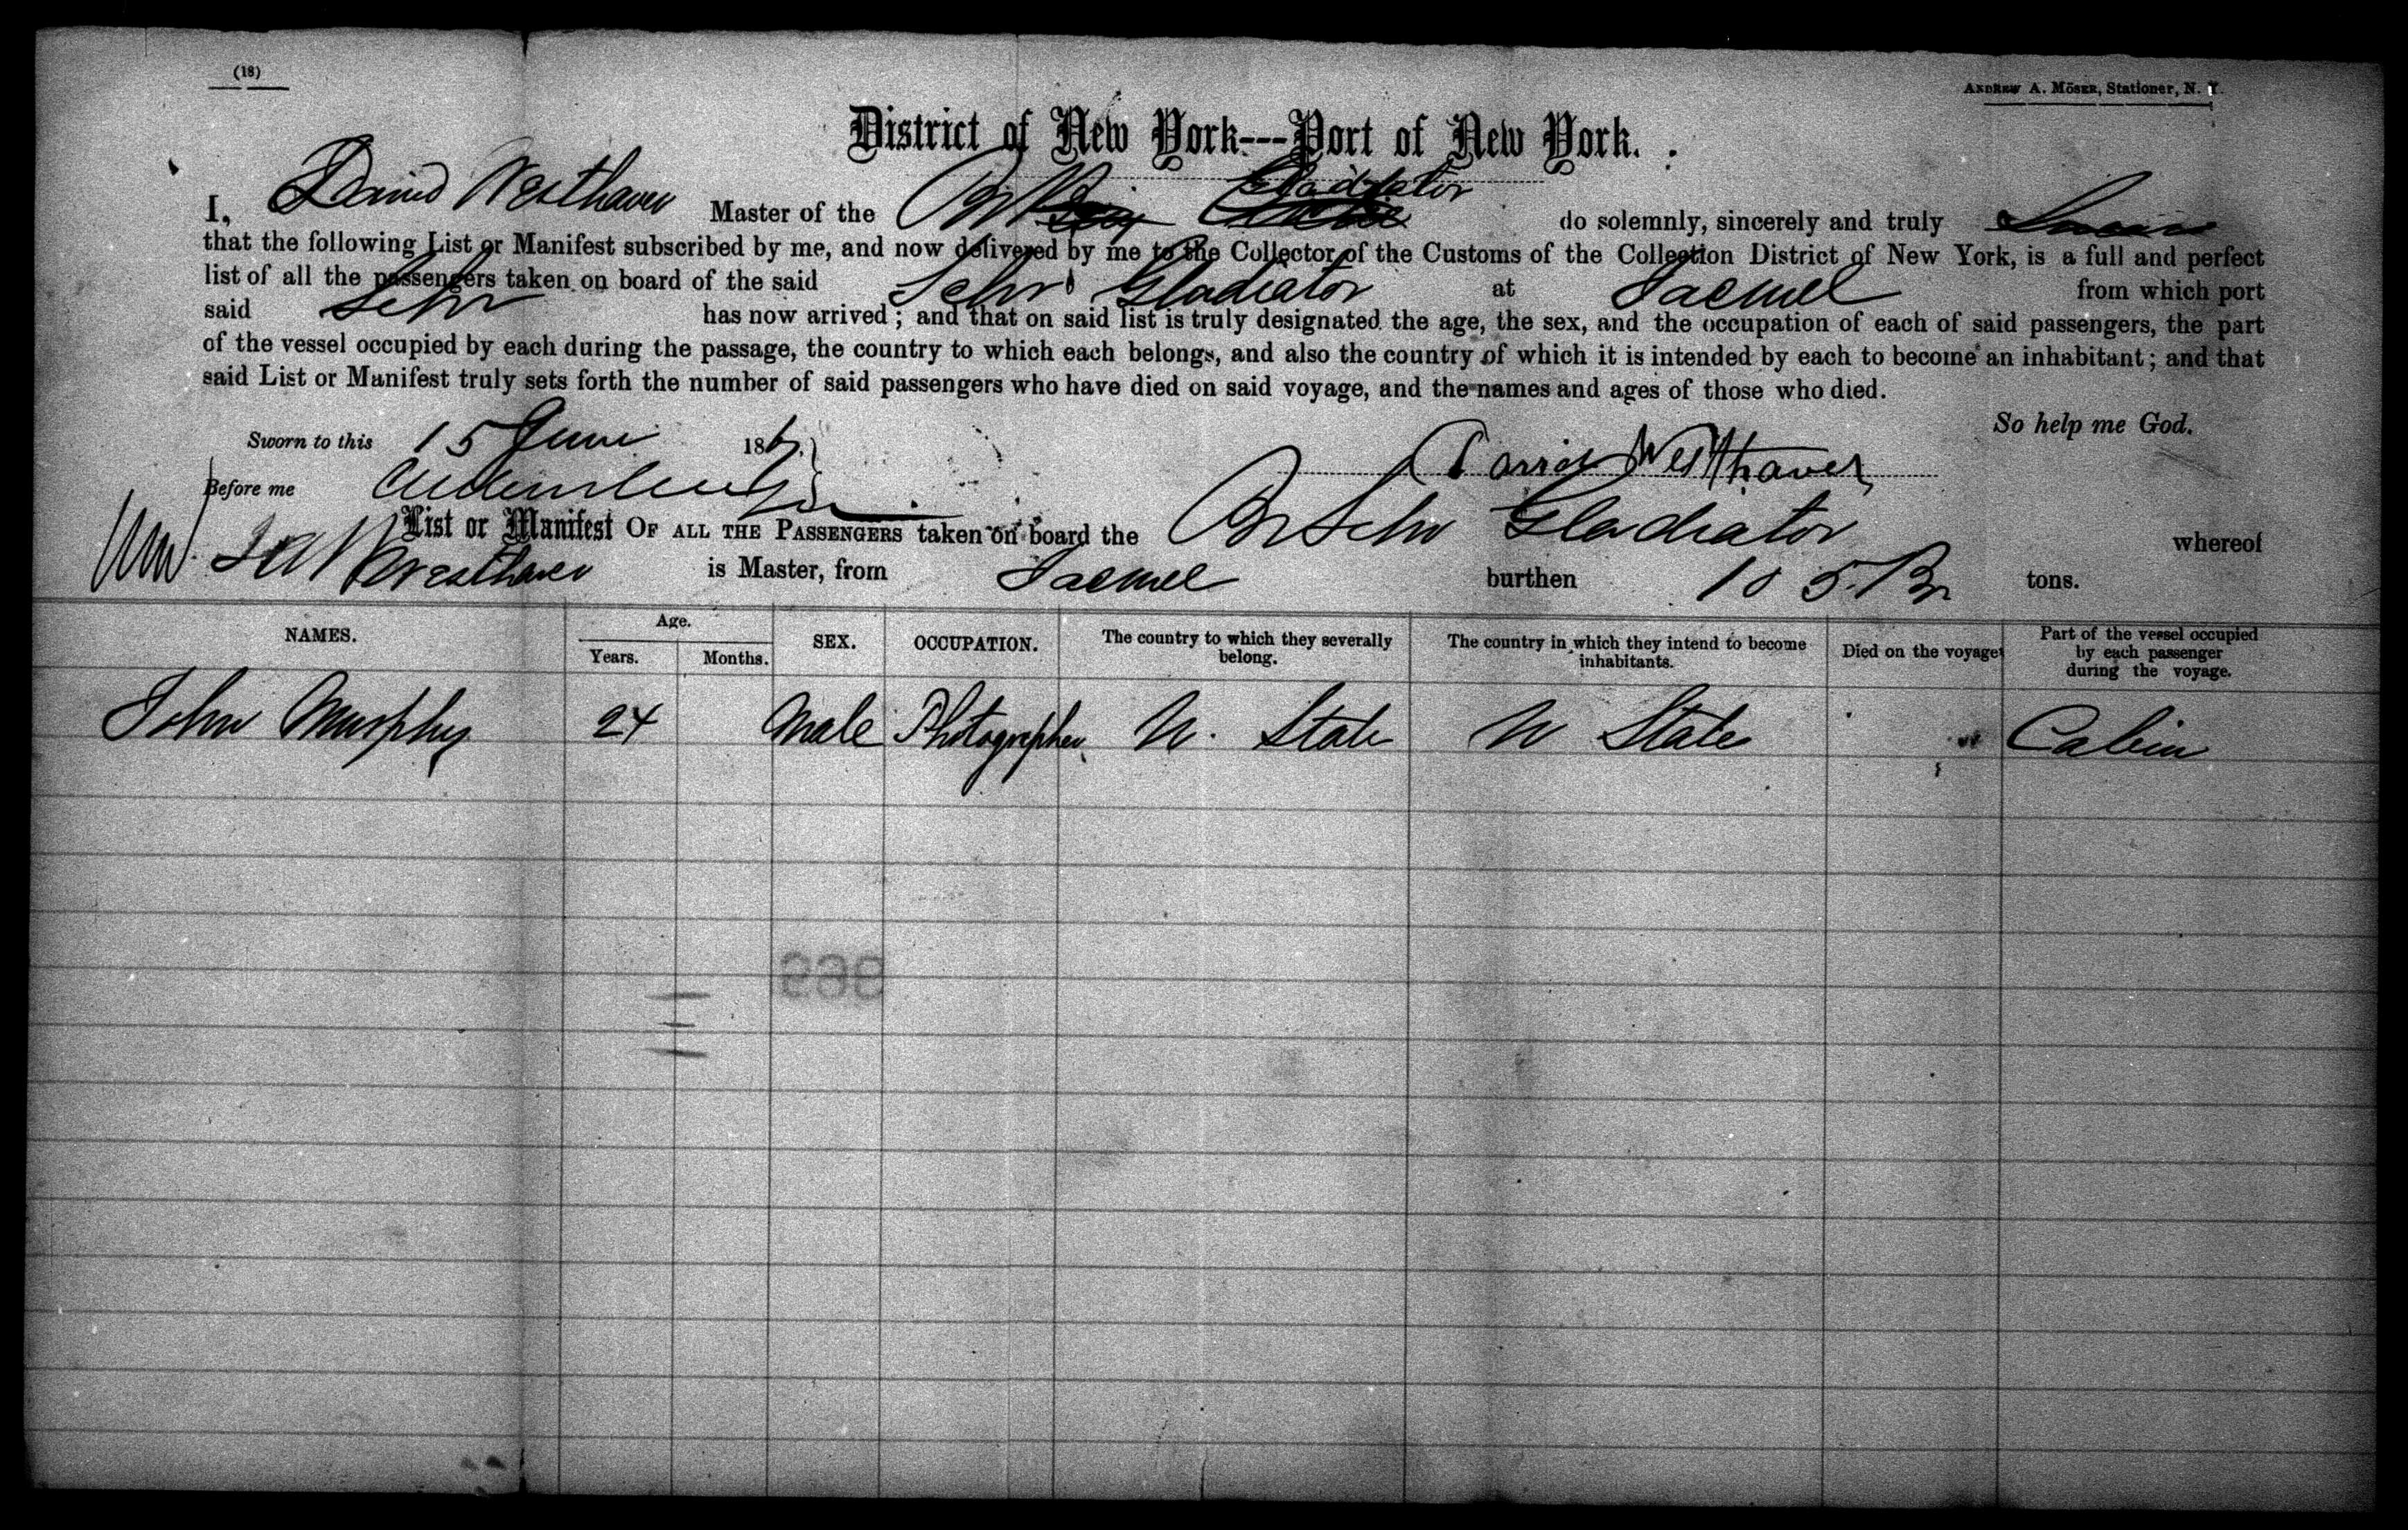 (18)
ANDREW A. MÖSER, Stationer, N. Y.
District of New York---Port of New York.
I, David Westhaver Master of the Br Gladiator do solemnly, sincerely and truly Swear
that the following List or Manifest subscribed by me, and now delivered by me to the Collector of the Customs of the Collection District of New York, is a full and perfect
list of all the passengers taken on board of the said Schr Gladiator at Jacmel from which port
said Schr has now arrived; and that on said list is truly designated the age, the sex, and the occupation of each of said passengers, the part
of the vessel occupied by each during the passage, the country to which each belongs, and also the country of which it is intended by each to become an inhabitant; and that
said List or Manifest truly sets forth the number of said passengers who have died on said voyage, and the names and ages of those who died.
So help me God.
Sworn to this 15 June 186
David Westhaver
Before me
List or Manifest OF ALL THE PASSENGERS taken on board the Br Schr Gladiator whereof
Westhaver is Master, from Jacmel burthen 105 tons.
NAMES. Age. Years. Months. SEX. OCCUPATION. The country to which they severally belong. The country in which they intend to become inhabitants. Died on the voyage Part of the vessel occupied by each passenger during the voyage.
John Murphy 24 Male Photographer U. State U State Cabin